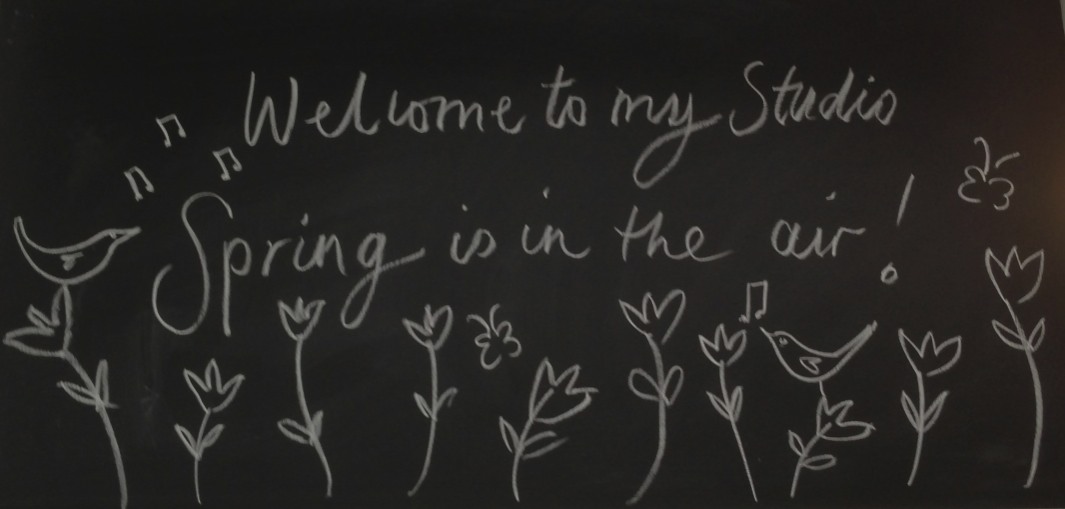 Welcome to my Studio
Spring is in the air!